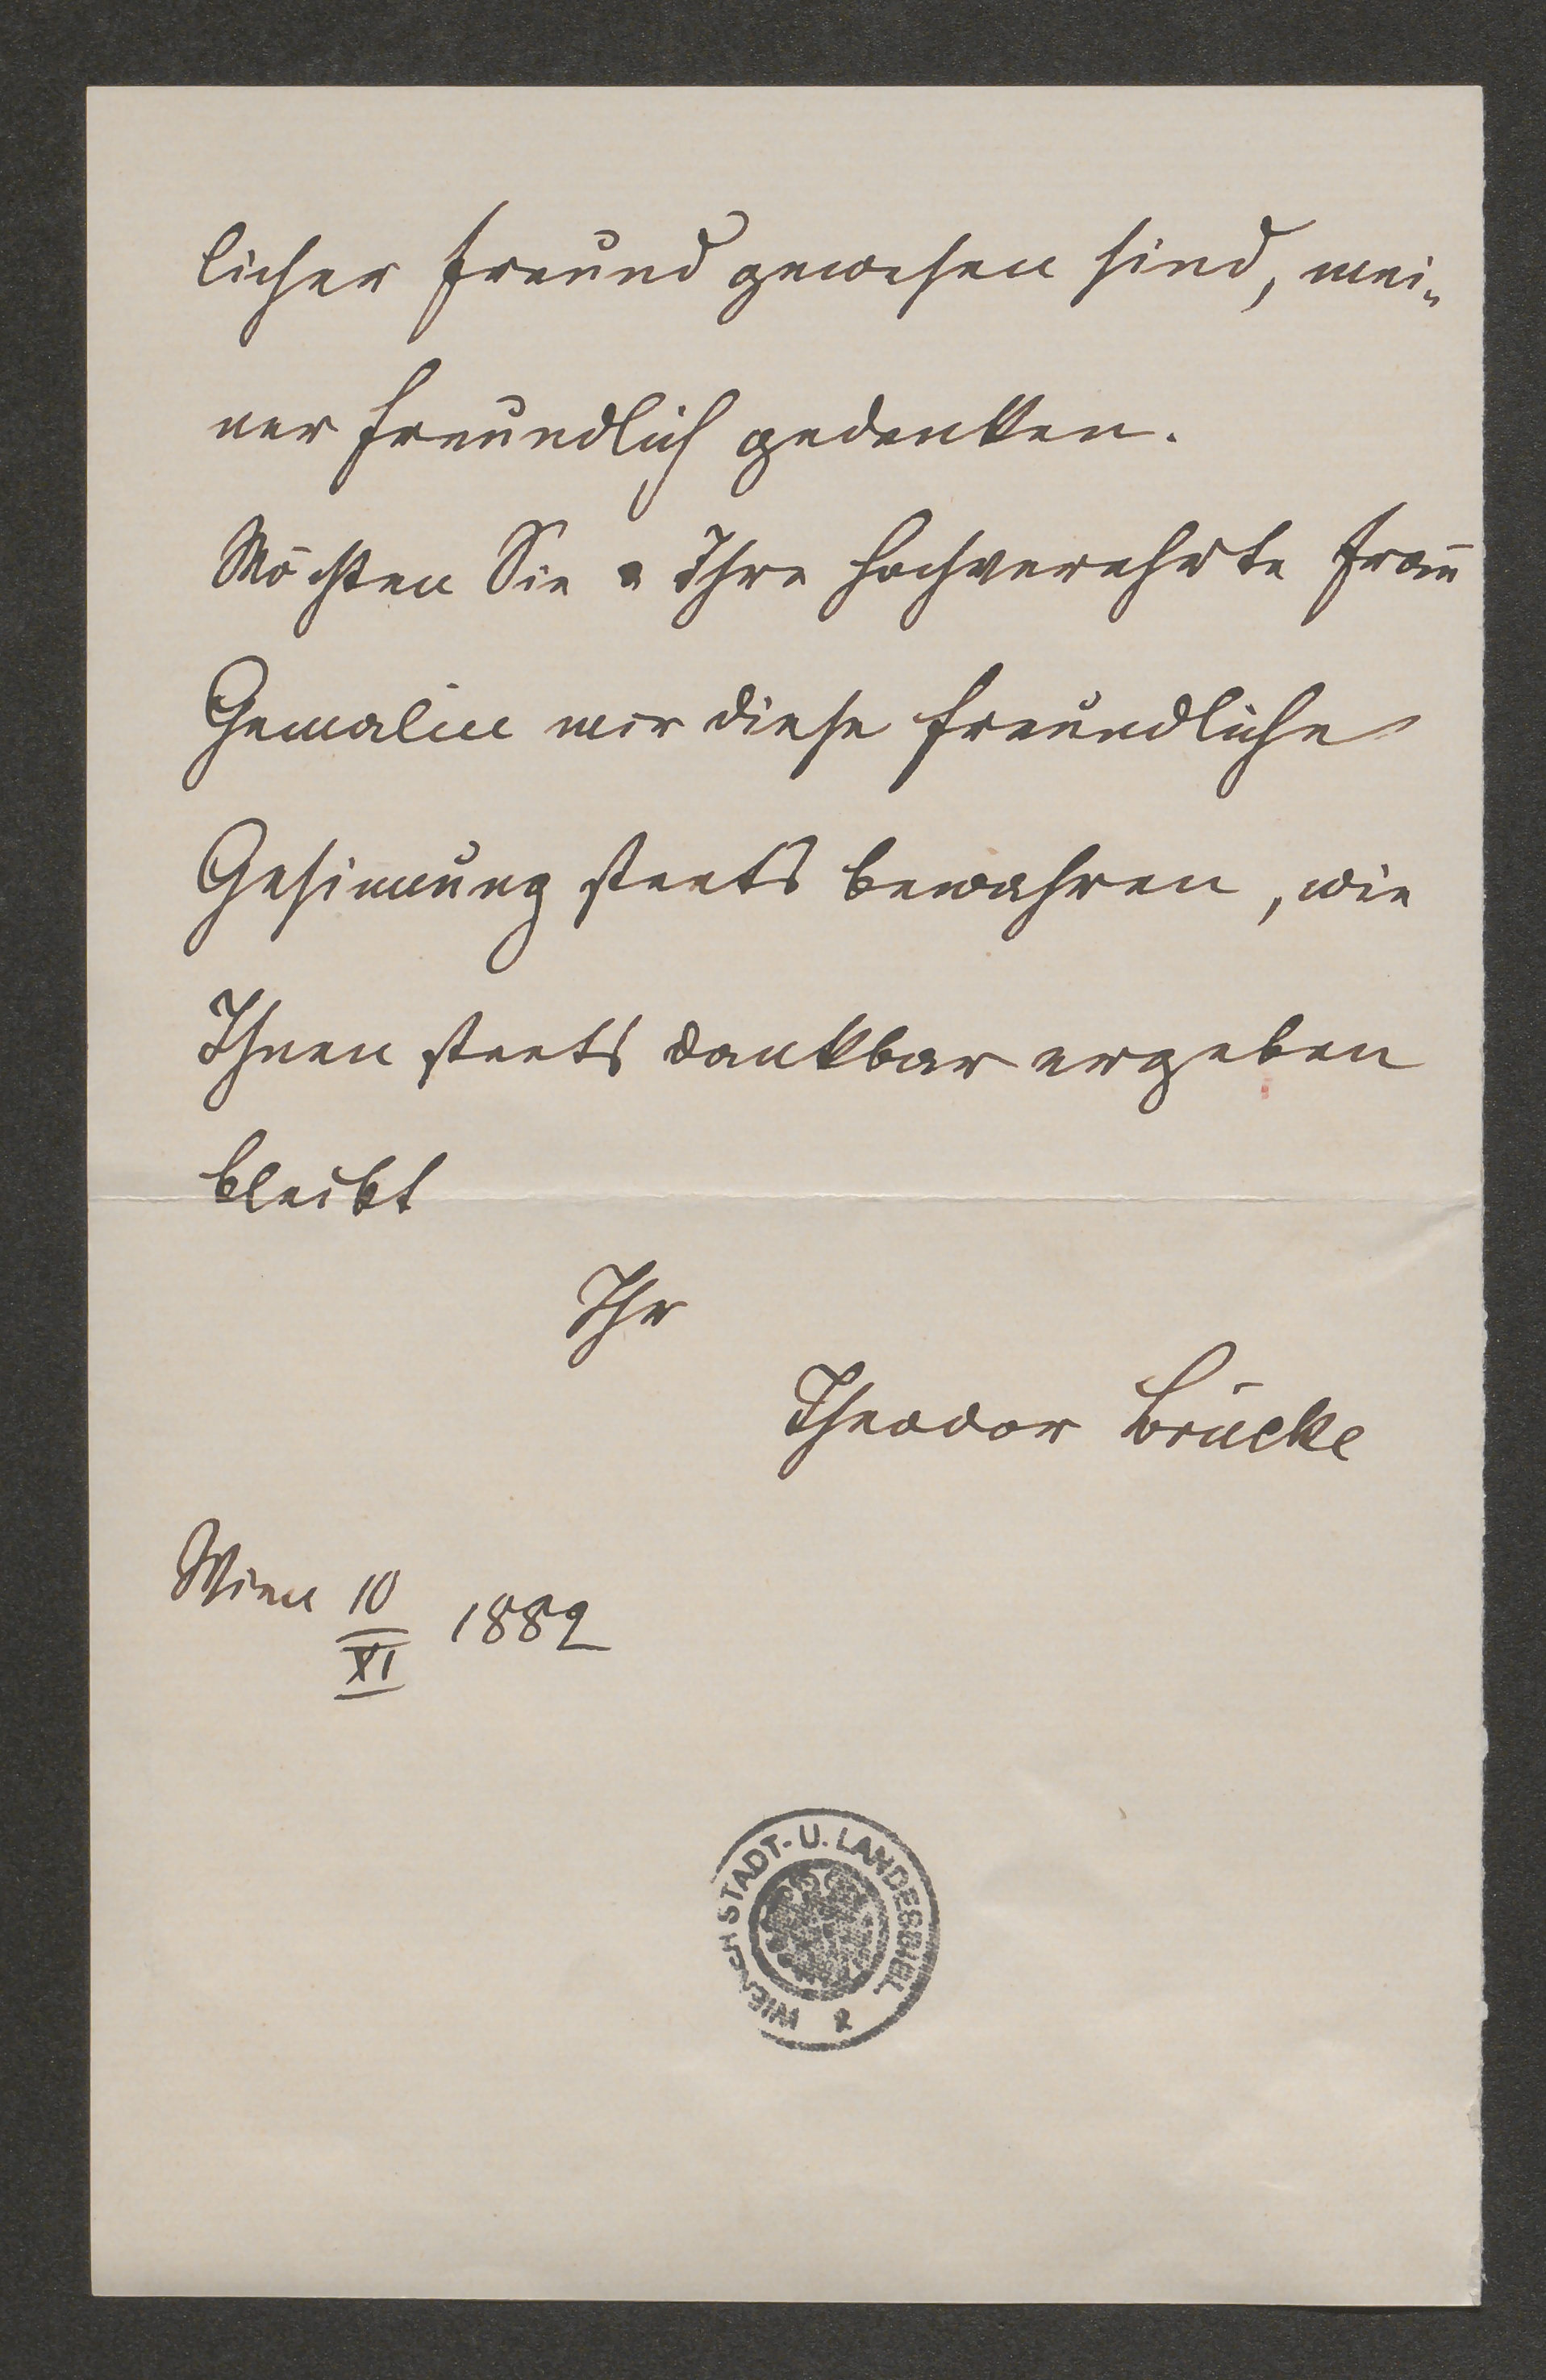 licher Freund gewesen sind, mei-
ner freundlich gedenken.
Möchten Sie u Ihre hochverehrte Frau
Gemalin mir diese freundliche
Gesinnung steets bewahren, wie
Ihnen steets dankbar ergeben
bleibt
Ihr
Theodor Brücke
Wien 10/XI 1882
WIENER STADT- U. LANDESBIBL.